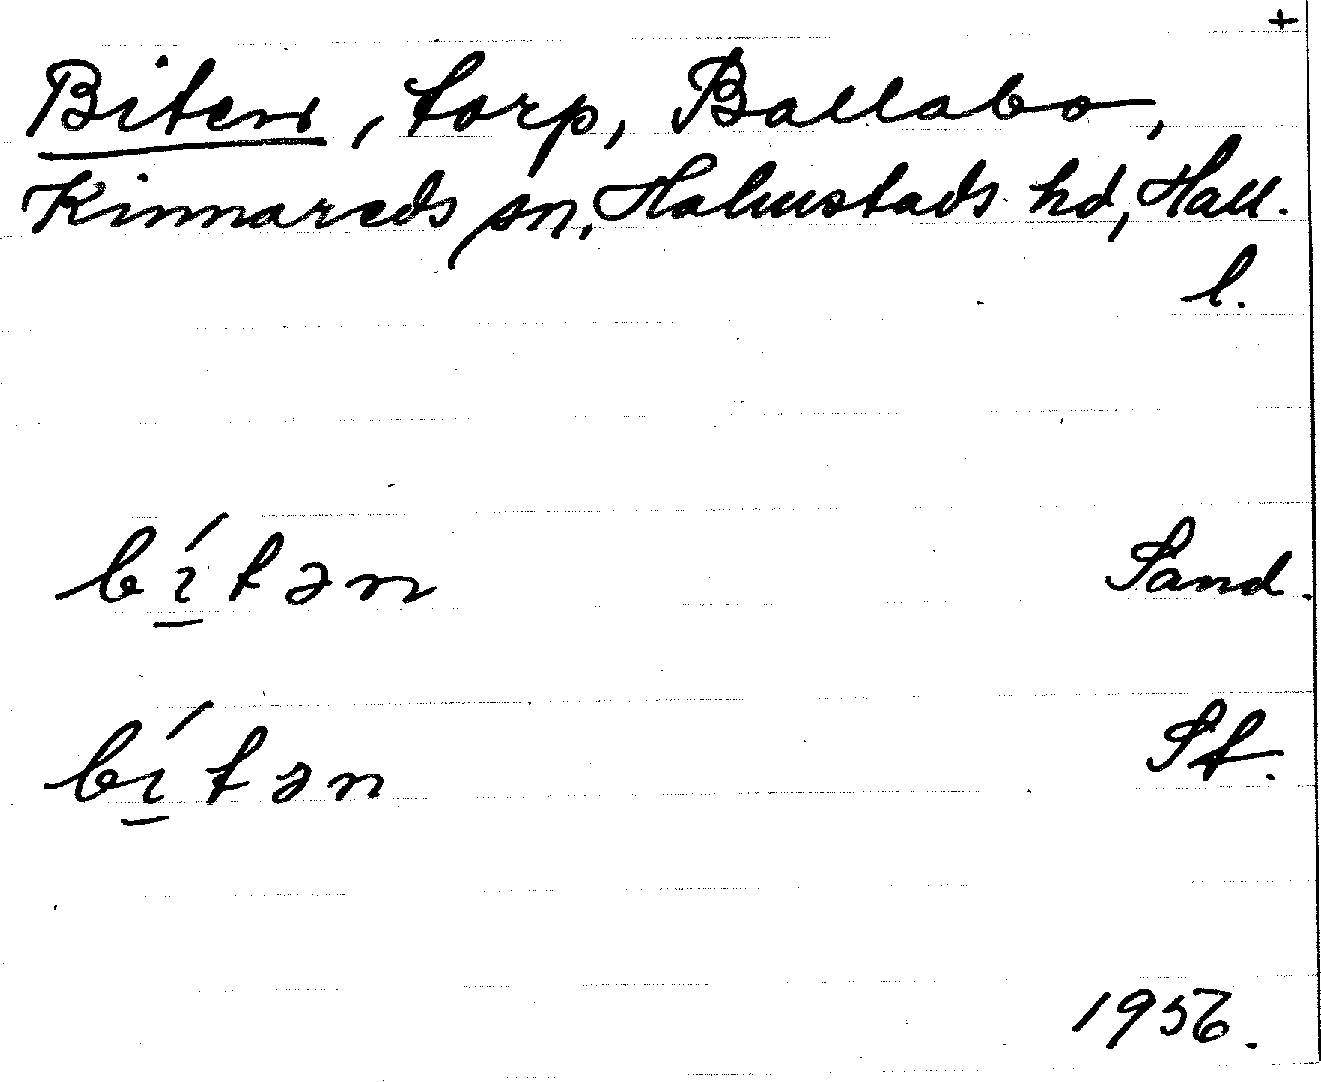 +
Biten, torp, Ballabo,
Kinnareds sn, Halmstads hd, Hall.
l.
bítən Sand.
bítən St.
1956.